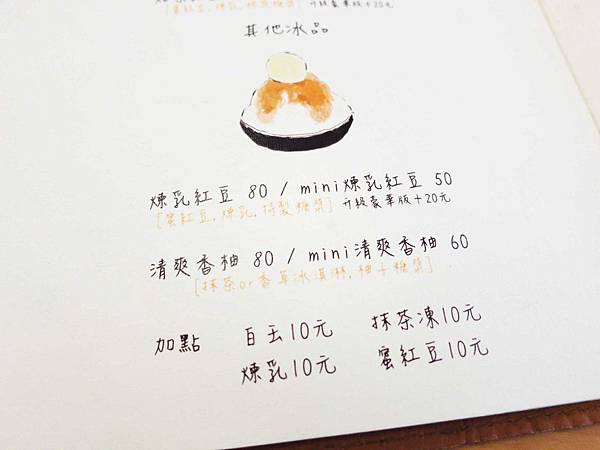 [蜜紅豆, 煉乳, 特製糖漿] 升級豪華版+20元
其他冰品
煉乳紅豆 80 / mini煉乳紅豆 50
[蜜紅豆, 煉乳, 特製糖漿] 升級豪華版+20元
清爽香柚 80 / mini清爽香柚 60
[抹茶or香草冰淇淋, 柚子糖漿]
加點 白玉10元 抹茶凍10元
煉乳10元 蜜紅豆10元